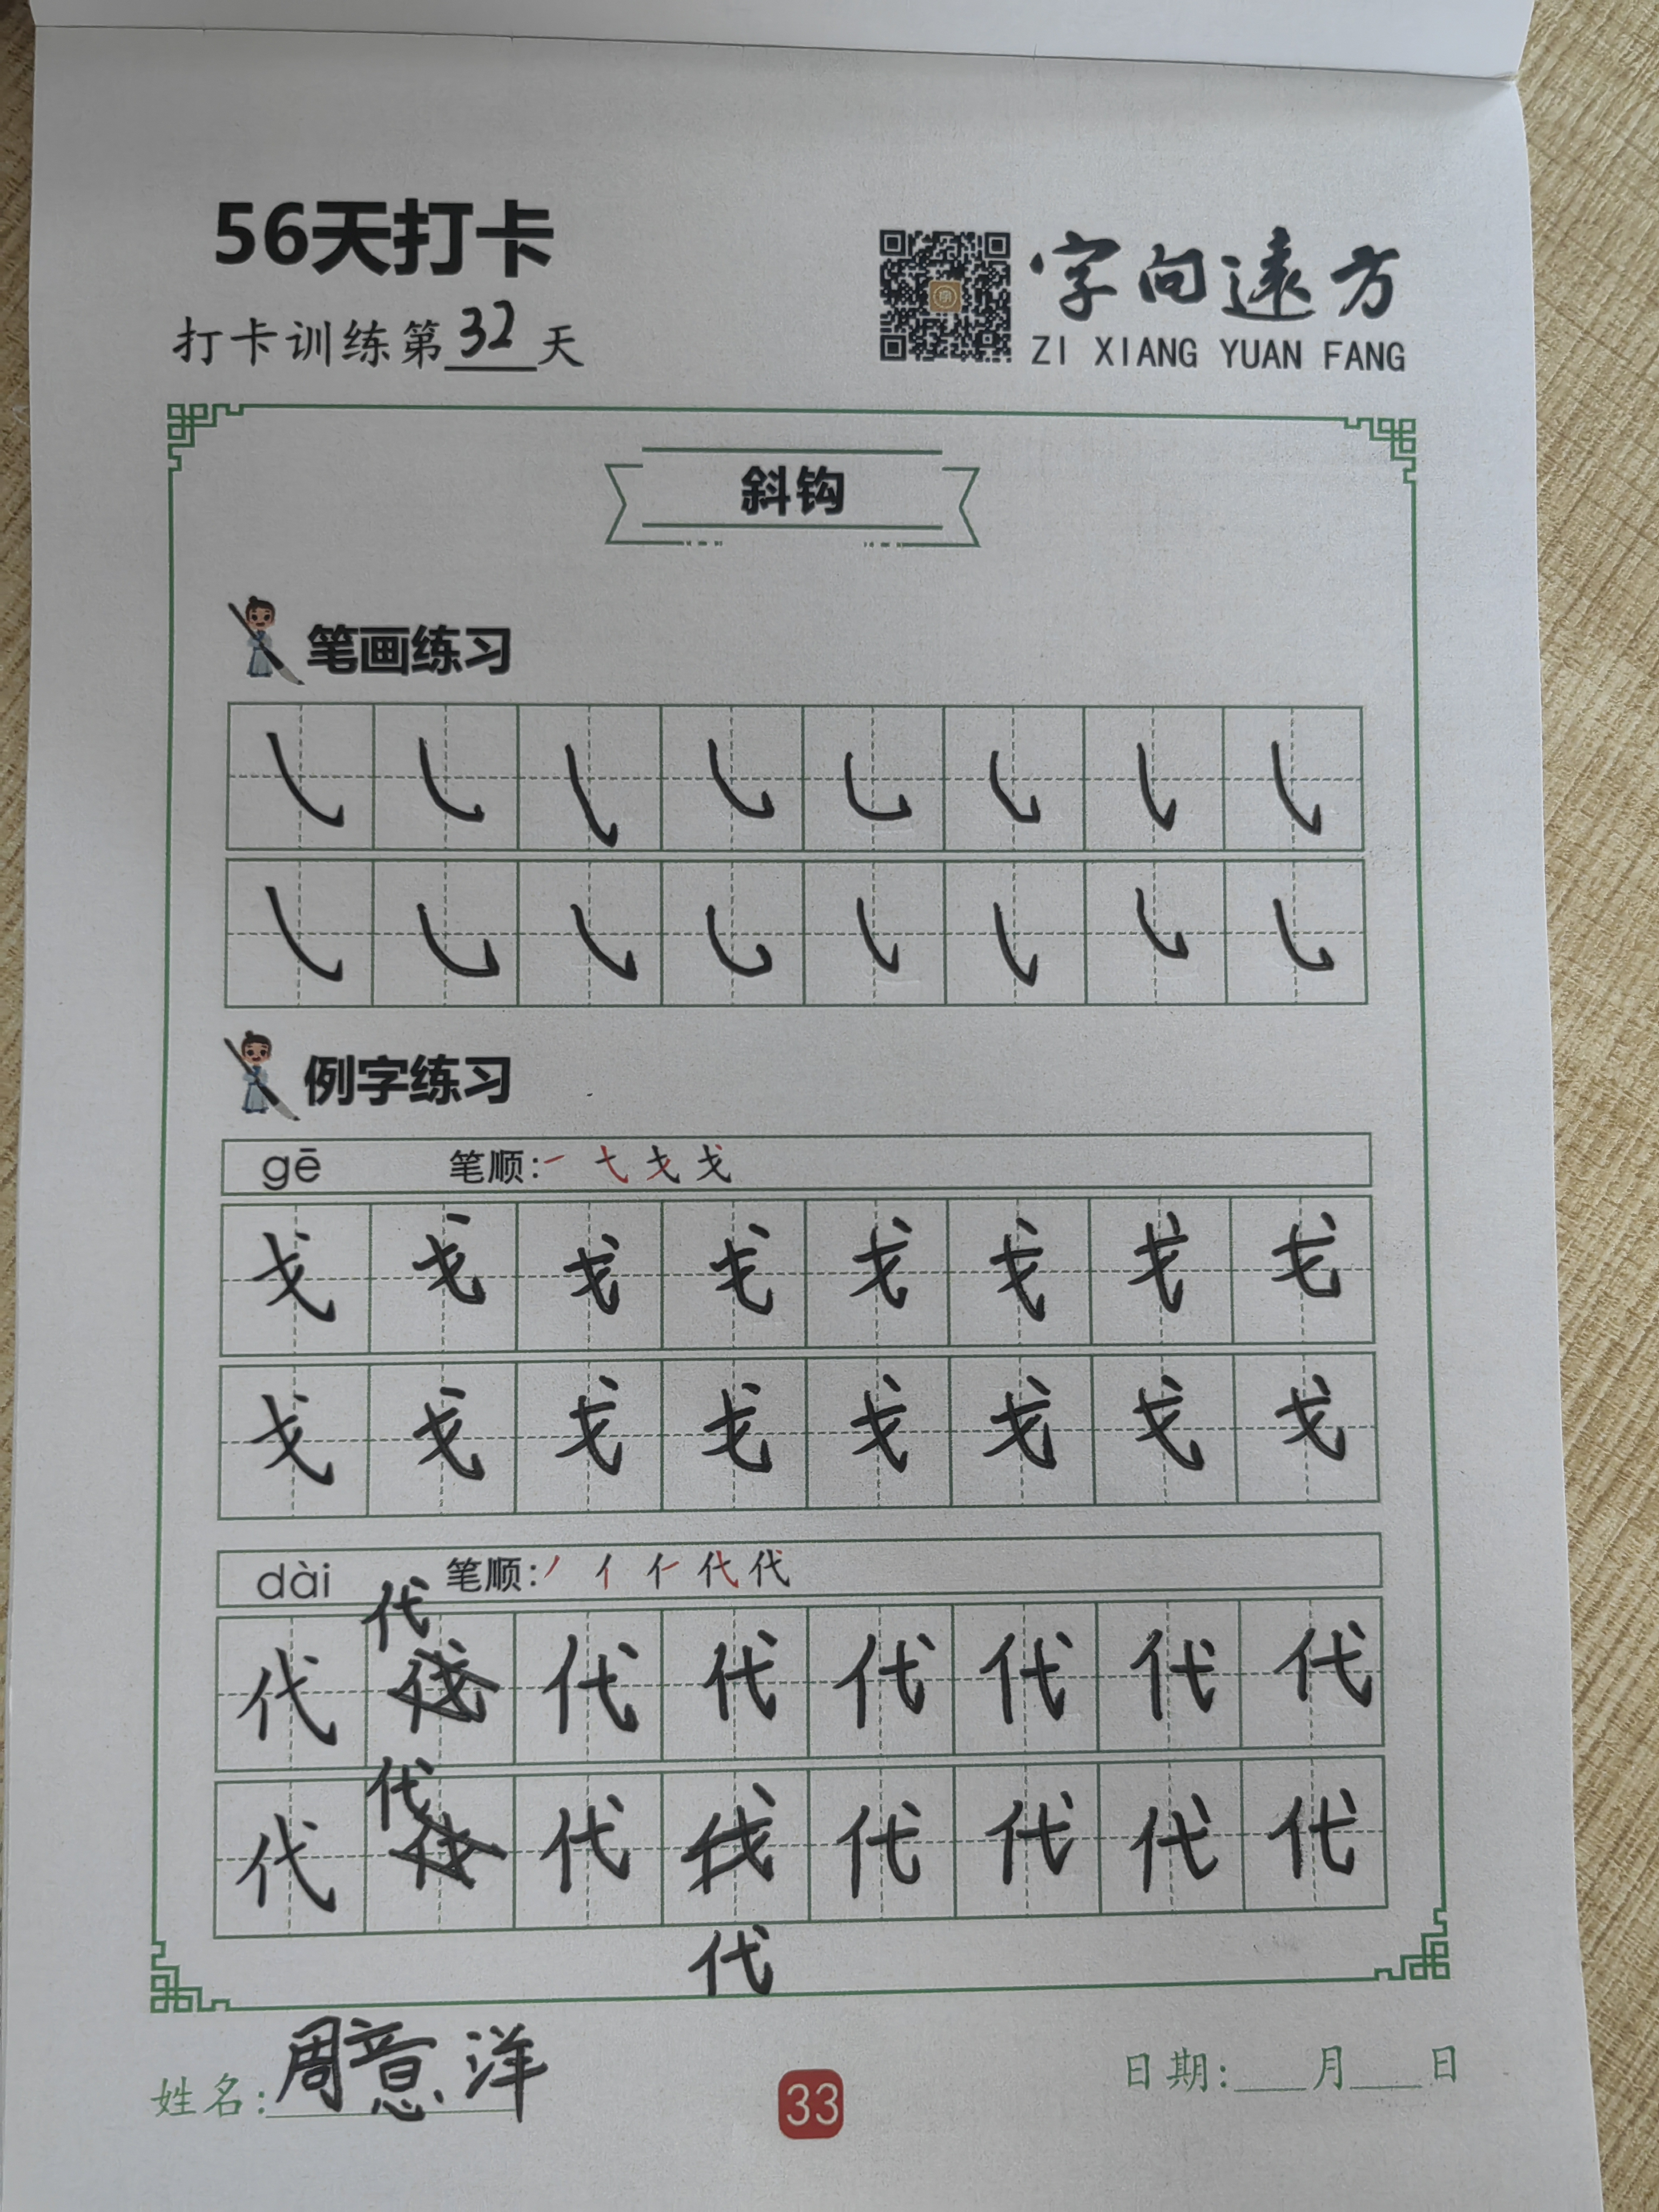 56天打卡
打卡训练第32天
字向遠方
ZI XIANG YUAN FANG
斜钩
笔画练习
㇂ ㇂ ㇂ ㇂ ㇂ ㇂ ㇂ ㇂
㇂ ㇂ ㇂ ㇂ ㇂ ㇂ ㇂ ㇂
例字练习
gē 笔顺:一 七 戈 戈
戈 戈 戈 戈 戈 戈 戈 戈
戈 戈 戈 戈 戈 戈 戈 戈
dài 笔顺:丿 亻 仁 代 代
代
代 伐 代 代 代 代 代 代
代
代 伐 代 伐 代 代 代 代
代
姓名:周意洋
33
日期:___月___日